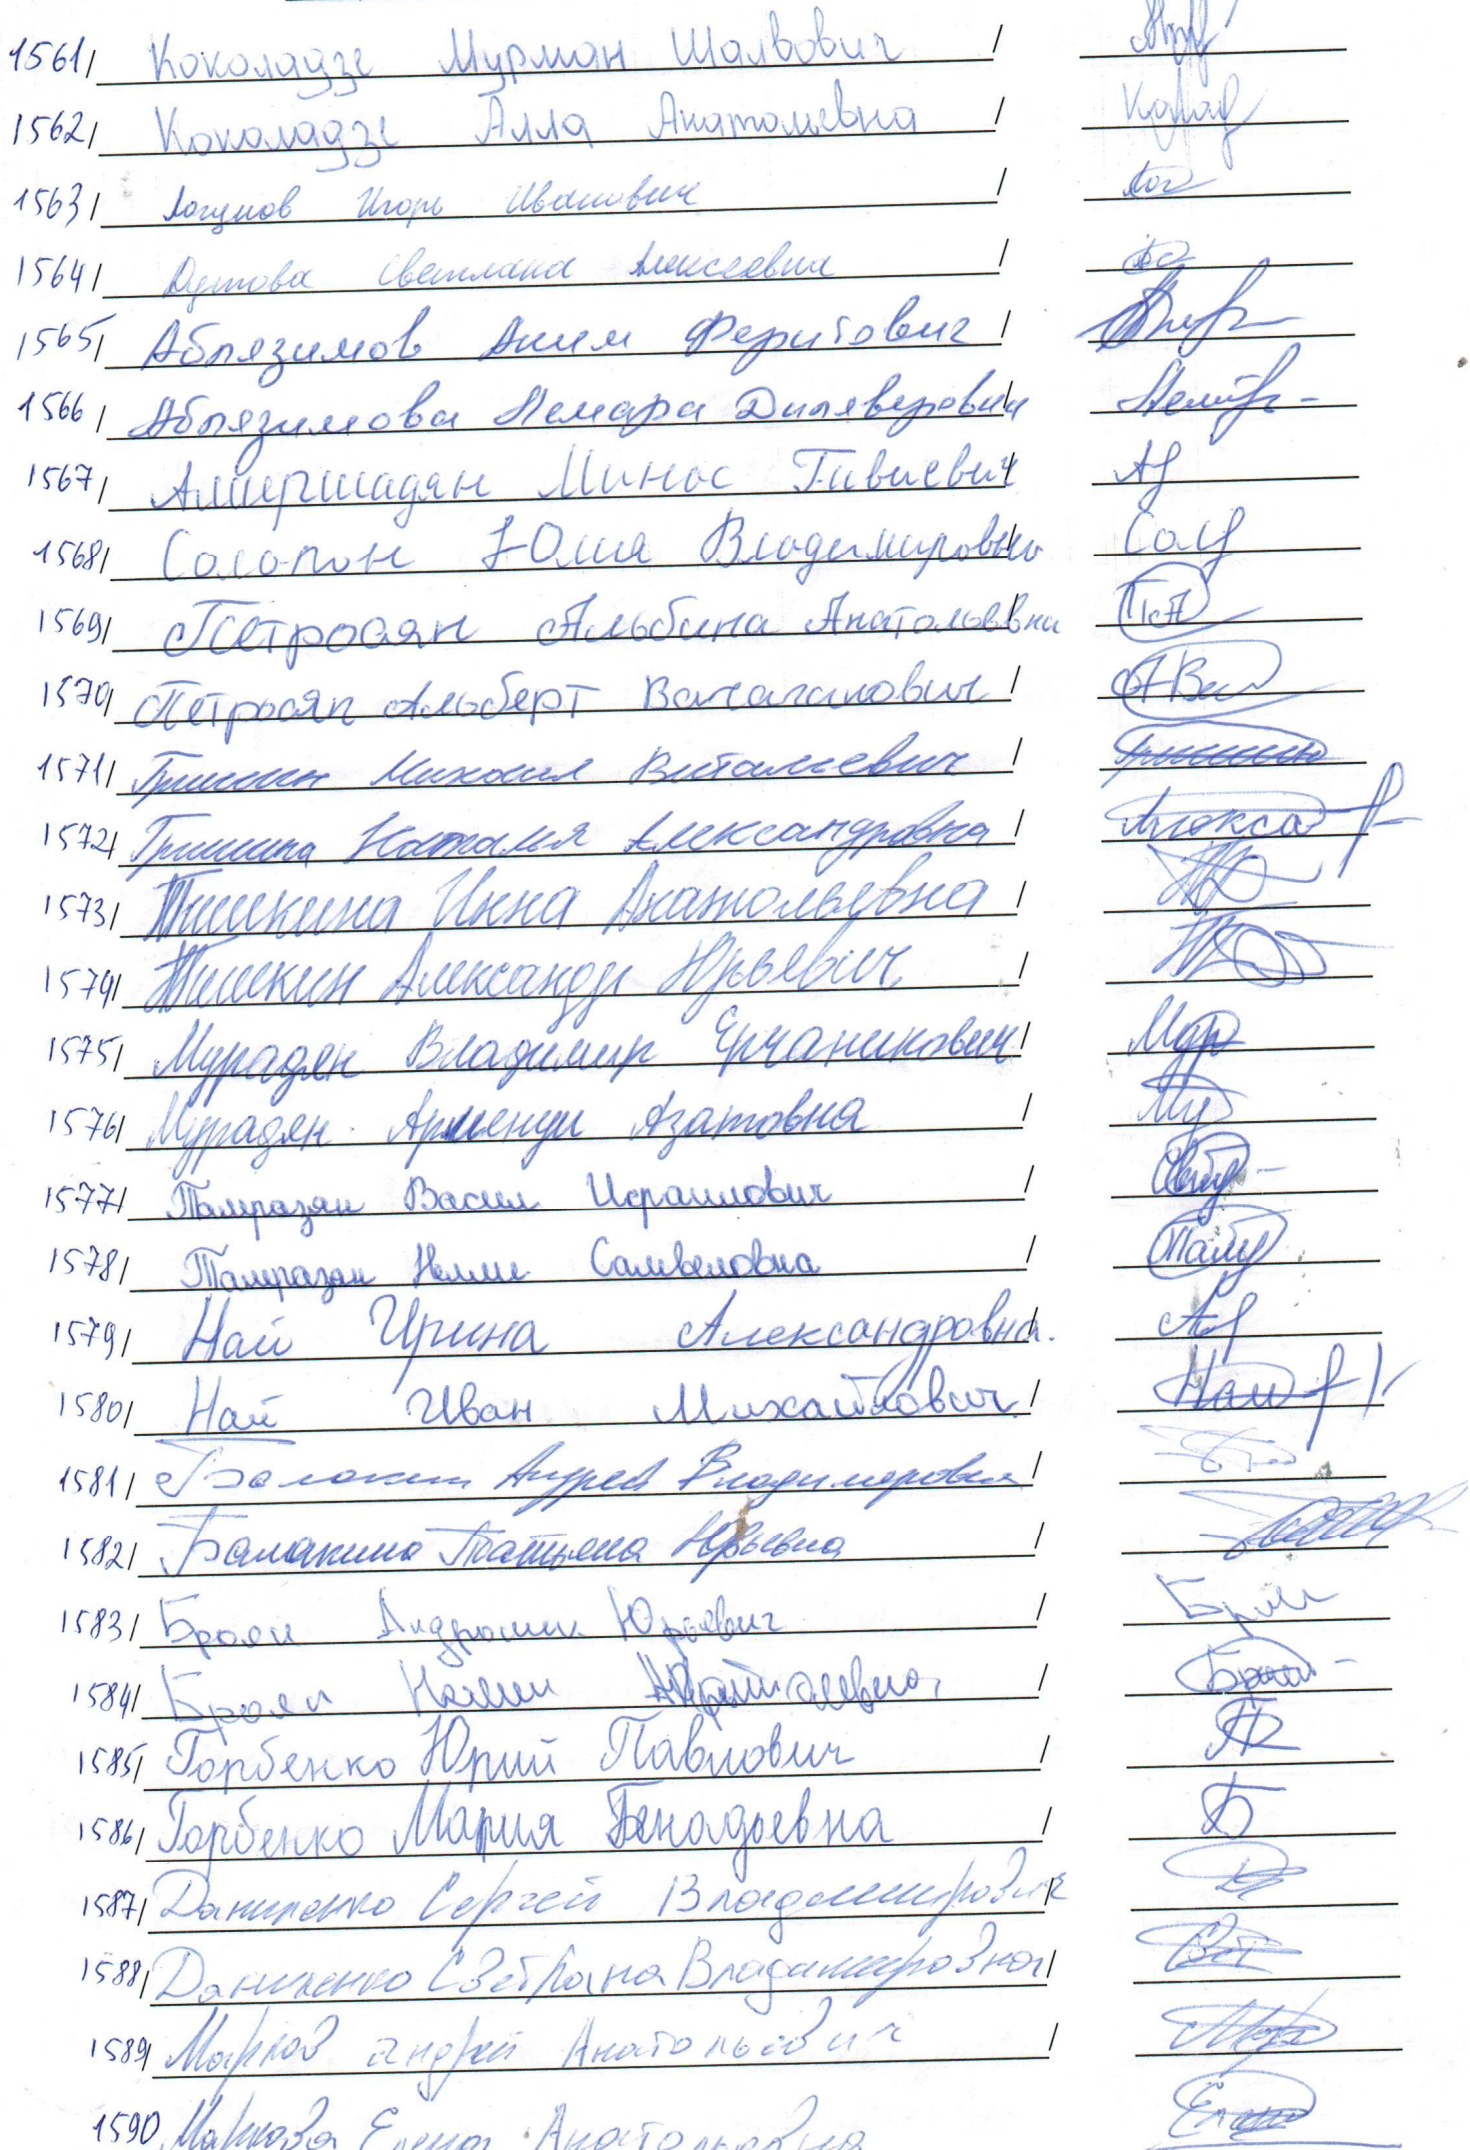 1561/ Коколадзе Мурман Шалвович /
1562/ Коколадзе Алла Анатольевна /
1563/ Логунов Игорь Иванович /
1564/ Дутова Светлана Алексеевна /
1565/ Аблязимов Аким Феритович /
1566/ Аблязимова Лемара Диляверовна /
1567/ Амиршадян Минас Гивиевич /
1568/ Солопон Юлия Владимировна /
1569/ Петросян Альбина Анатольевна /
1570/ Петросян Альберт Вачаганович /
1571/ Гришин Михаил Витальевич /
1572/ Гришина Наталия Александровна /
1573/ Тишкина Инна Анатольевна /
1574/ Тишкин Александр Юрьевич /
1575/ Мурадян Владимир Ерчаникович /
1576/ Мурадян Арменуи Азатовна /
1577/ Тамразян Васил Исраилович /
1578/ Тамразян Нелли Самвеловна /
1579/ Най Ирина Александровна /
1580/ Най Иван Михайлович /
1581/ Балакин Андрей Владимирович /
1582/ Балакина Татьяна Юрьевна /
1583/ Броян Андраник Юрьевич /
1584/ Броян Нелли /
1585/ Горбенко Юрий Павлович /
1586/ Горбенко Мария Генадьевна /
1587/ Даниленко Сергей Владимирович /
1588/ Даниленко Светлана Владимировна /
1589/ Марков Андрей Анатольевич /
1590 Маркова Елена Анатольевна